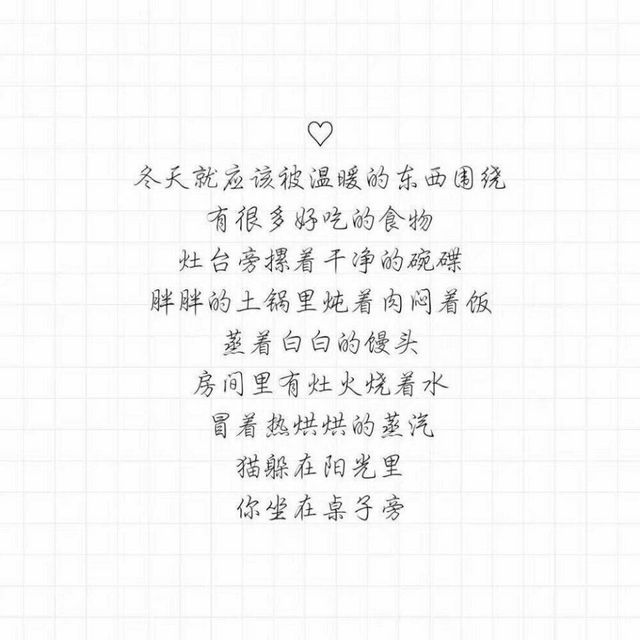 冬天就应该被温暖的东西围绕
有很多好吃的食物
灶台旁摞着干净的碗碟
胖胖的土锅里炖着肉闷着饭
蒸着白白的馒头
房间里有灶火烧着水
冒着热烘烘的蒸汽
猫躲在阳光里
你坐在桌子旁